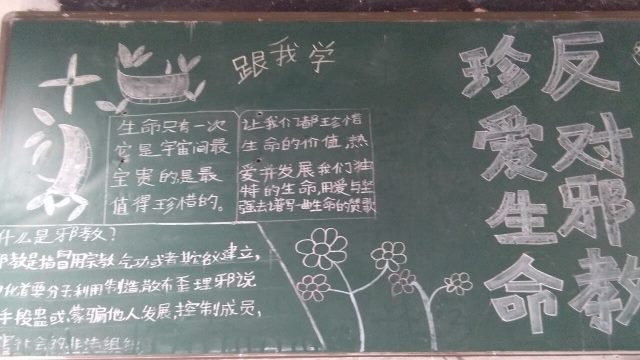 跟我学
珍爱生命
反对邪教
生命只有一次
它是宇宙间最
宝贵的是最
值得珍惜的。
让我们都珍惜
生命的价值,热
爱并发展我们独
特的生命,用爱与坚
强去谱写一曲生命的赞歌
什么是邪教?
邪教是指冒用宗教气功或者其它名义建立,
化首要分子利用制造散布歪理邪说
手段蛊或蒙骗他人发展控制成员,
害社会的非法组织